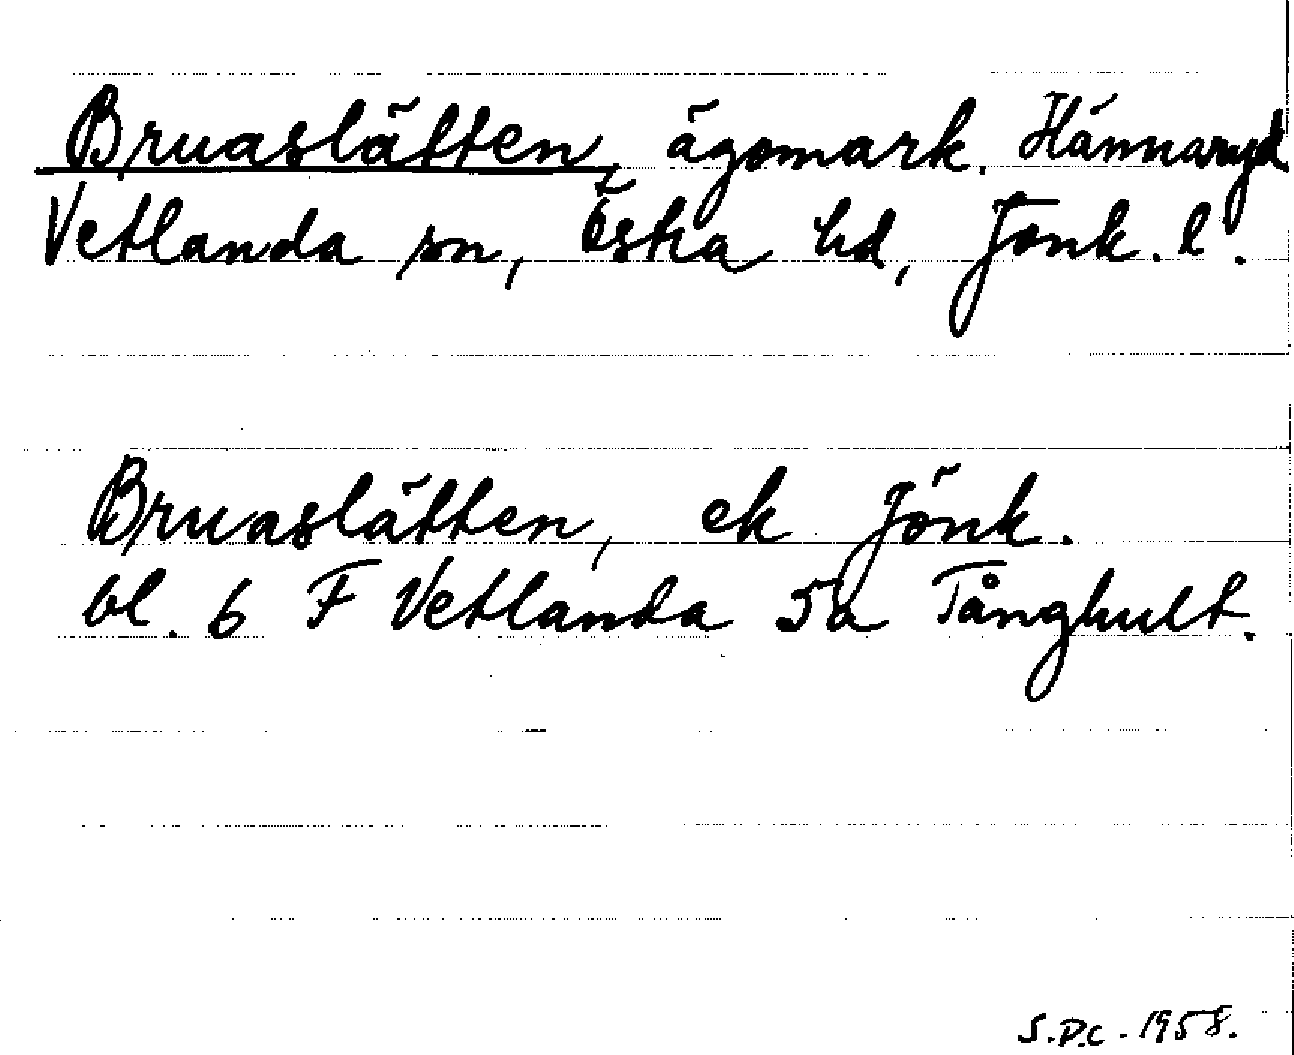 Bruaslätten, ägomark. Hännaryd
Vetlanda sn, Östra hd, Jönk. l.
Bruaslätten, ek Jönk.
bl. 6 F Vetlanda 5a Tånghult.
S.D.C. 1958.